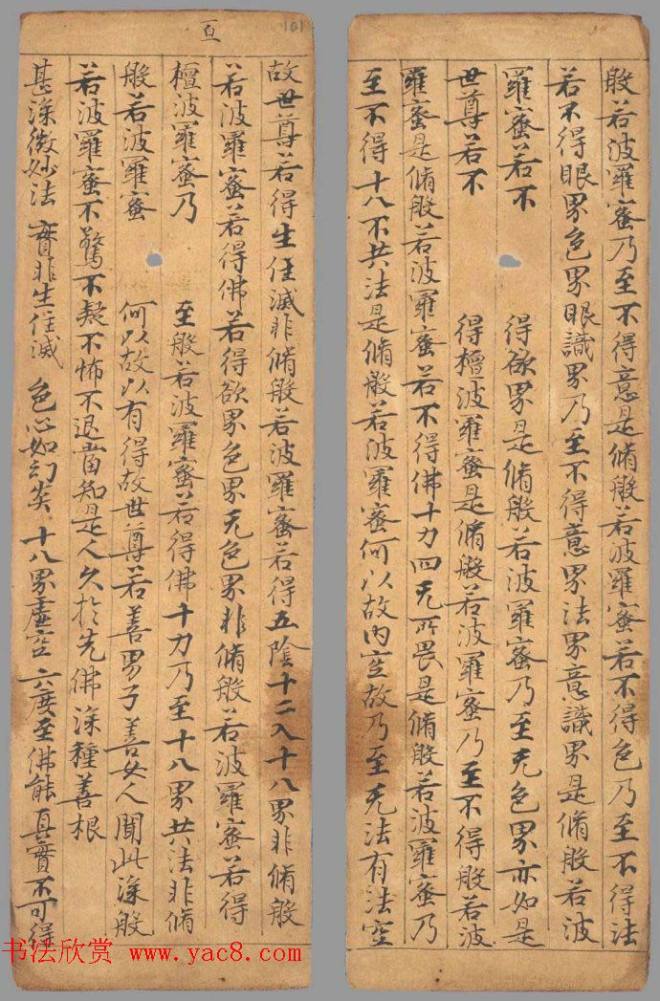 般若波羅蜜乃至不得意是脩般若波羅蜜若不得色乃至不得法
若不得眼界色界眼識界乃至不得意界法界意識界是脩般若波
羅蜜若不 得欲界是脩般若波羅蜜乃至无色界亦如是
世尊若不 得檀波羅蜜是脩般若波羅蜜乃至不得般若波
羅蜜是脩般若波羅蜜若不得佛十力四无所畏是脩般若波羅蜜乃
至不得十八不共法是脩般若波羅蜜何以故內空故乃至无法有法空
百
101
故世尊若得生住滅非脩般若波羅蜜若得五陰十二入十八界非脩般
若波羅蜜若得佛若得欲界色界无色界非脩般若波羅蜜若得
檀波羅蜜乃 至般若波羅蜜若得佛十力乃至十八界共法非脩
般若波羅蜜 何以故以有得故世尊若善男子善女人聞此深般
若波羅蜜不驚不疑不怖不退當知是人久於先佛深種善根
甚深微妙法 實非生住滅 色心如幻炎 十八界虛空 六度至佛能 真實不可得
书法欣赏 www.yac8.com